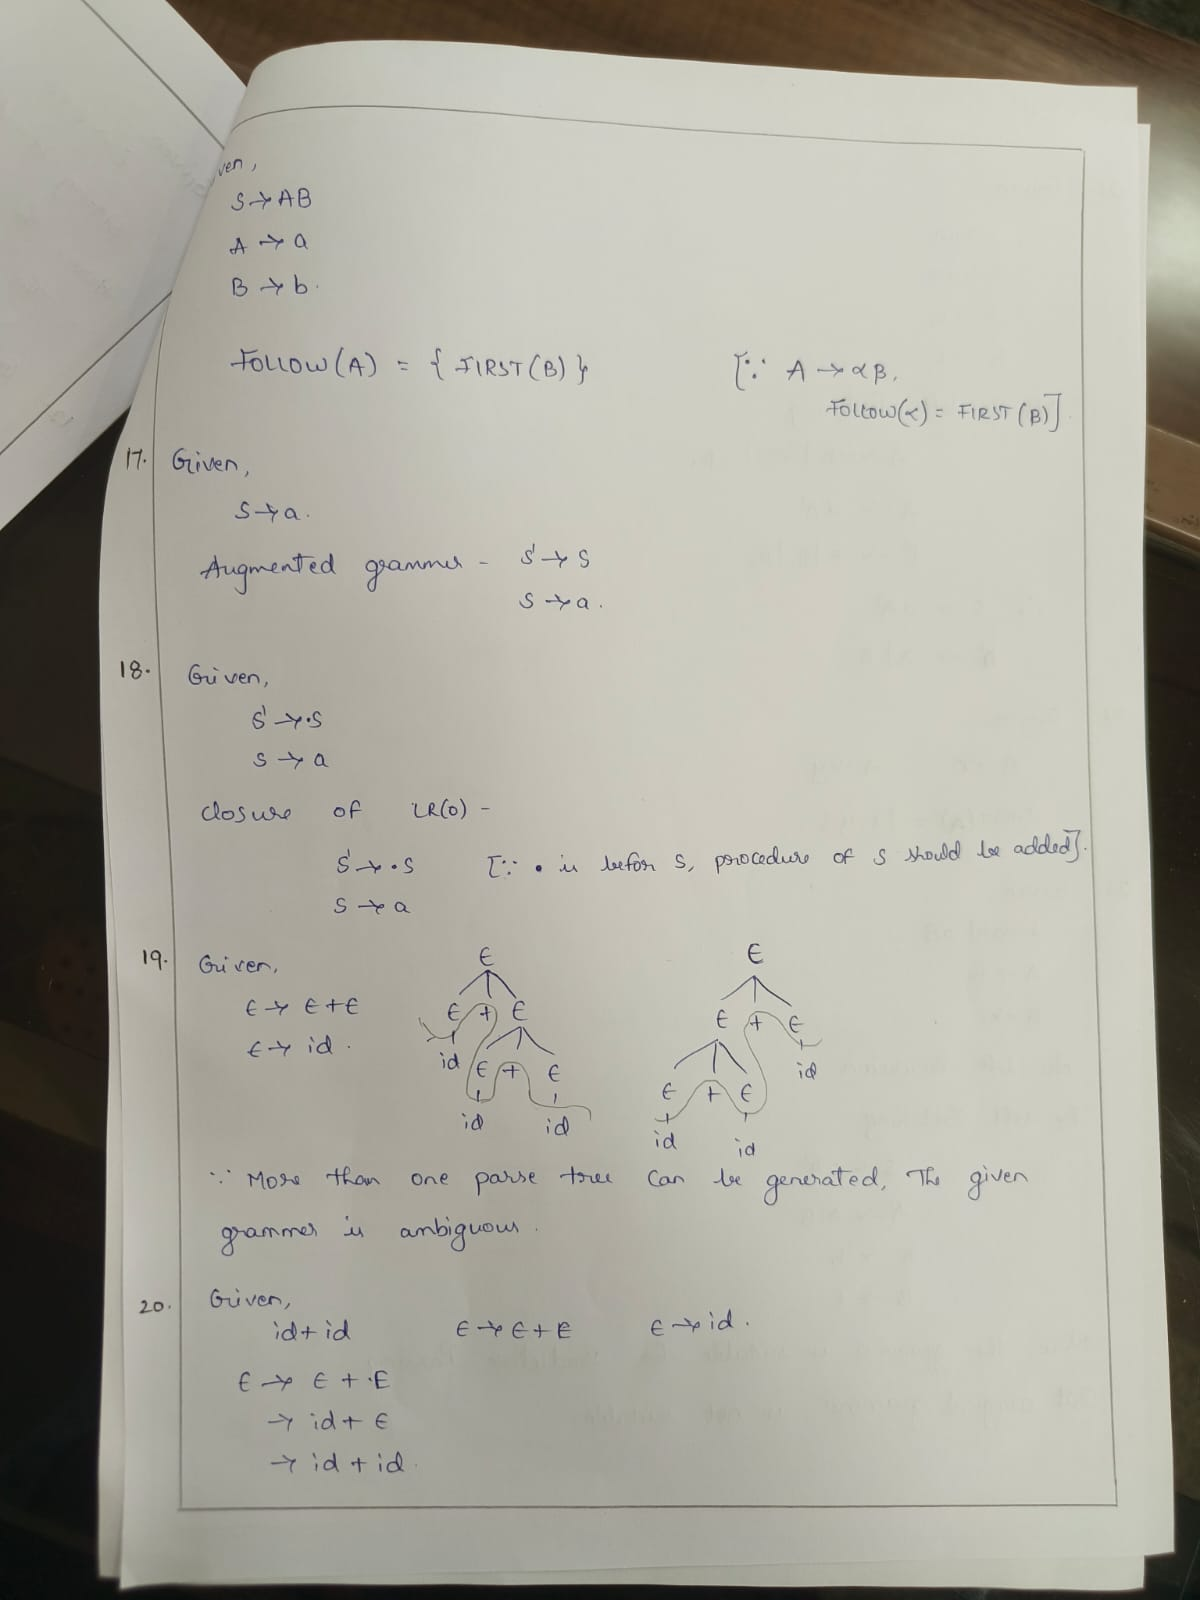 ven,
S→AB
A→a
B→b.
FOLLOW(A) = { FIRST(B) } [∵ A→αβ,
FOLLOW(α) = FIRST(β)].
17. Given,
S→a.
Augmented grammer - S'→S
S→a.
18. Given,
S'→·S
S→a
closure of LR(0) -
S'→·S [∵ • is befor S, procedure of S should be added].
S→a
19. Given, E E
E→E+E E + E E + E
E→id. id E + E E + E id
id id id id
∵ More than one parse tree can be generated, The given
grammer is ambiguous.
20. Given,
id+id E→E+E E→id.
E→E+·E
→id+E
→id+id.